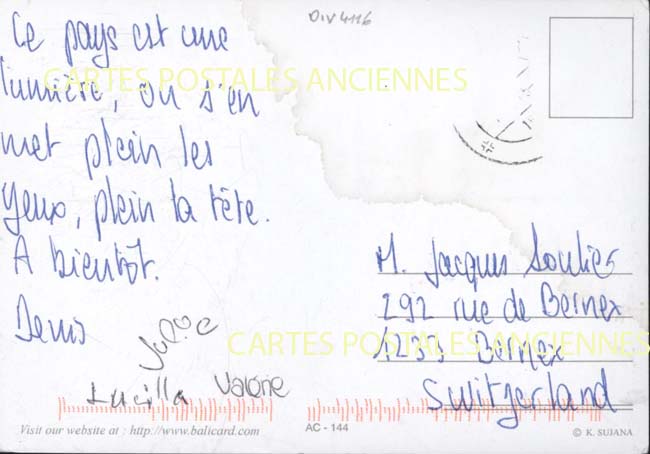 DIV4116
Ce pays est une
lumière, on s'en
met plein les
yeux, plein la tête.
A bientôt.
Denis
Julie
Lucilla Valérie
M. Jacques Soulier
292 rue de Bernex
1233 Bernex
Switzerland
CARTES POSTALES ANCIENNES
CARTES POSTALES ANCIENNES
Visit our website at : http://www.balicard.com
AC - 144
© K. SUJANA